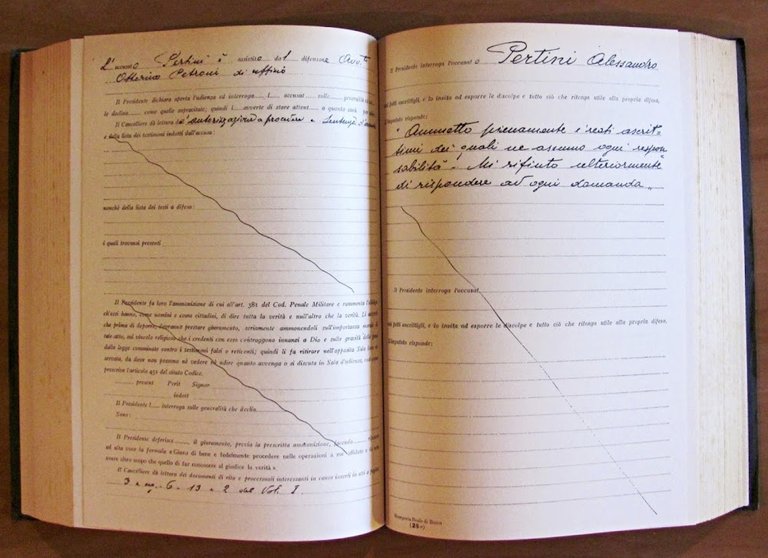 L' accusato Pertini è assistito dal difensore Avv.to
Ottorino Petroni di uffizio
Il Presidente dichiara aperta l'udienza ed interroga l accusat sulle generalità
le declina come quelle sopracitate; quindi l avverte di stare attent a quanto
Il Cancelliere dà lettura autorizzazione a procedere e Sentenza
e della lista dei testimoni indotti dall'accusa:
nonchè della lista dei testi a difesa:
i quali trovansi presenti
Il Presidente fa loro l'ammonizione di cui all'art. 381 del Cod. Penale Militare e rammenta
ch'essi hanno, come uomini e come cittadini, di dire tutta la verità e null'altro che la verità. Li
che prima di deporre, dovranno prestare giuramento, seriamente ammonendoli sull'importanza
tale atto, sul vincolo religioso che i credenti con esso contraggono innanzi a Dio e sulle gravità
dalla legge comminate contro i testimoni falsi o reticenti; quindi li fa ritirare nell'apposita Sala
d'onde non possono nè vedere nè udire quanto avvenga o si discuta in Sala d'udienza,
prescrive l'articolo 451 del citato Codice.
present Perit Signor
indott
Il Presidente l interroga sulle generalità che declin
Sono:
Il Presidente deferisce il giuramento, previa la prescritta ammonizione,
ad alta voce la formola « Giuro di bene e fedelmente procedere nelle operazioni a me affidate e di non
avere altro scopo che quello di far conoscere al giudice la verità ».
Il Cancelliere dà lettura dei documenti di rito e processuali interessanti la causa inserti in atti a pagine
3 - 6 - 13 e 2 del Vol. I.
Il Presidente interroga l'accusato Pertini Alessandro
sui fatti ascrittigli, e lo invita ad esporre le discolpe e tutto ciò che ritenga utile alla propria difesa.
L'imputato risponde:
" Ammetto pienamente i reati ascrit-
timi dei quali ne assumo ogni respon-
sabilità". Mi rifiuto ulteriormente
di rispondere ad ogni domanda „
Il Presidente interroga l'accusat
sui fatti ascrittigli, e lo invita ad esporre le discolpe e tutto ciò che ritenga utile alla propria difesa.
L'imputato risponde: